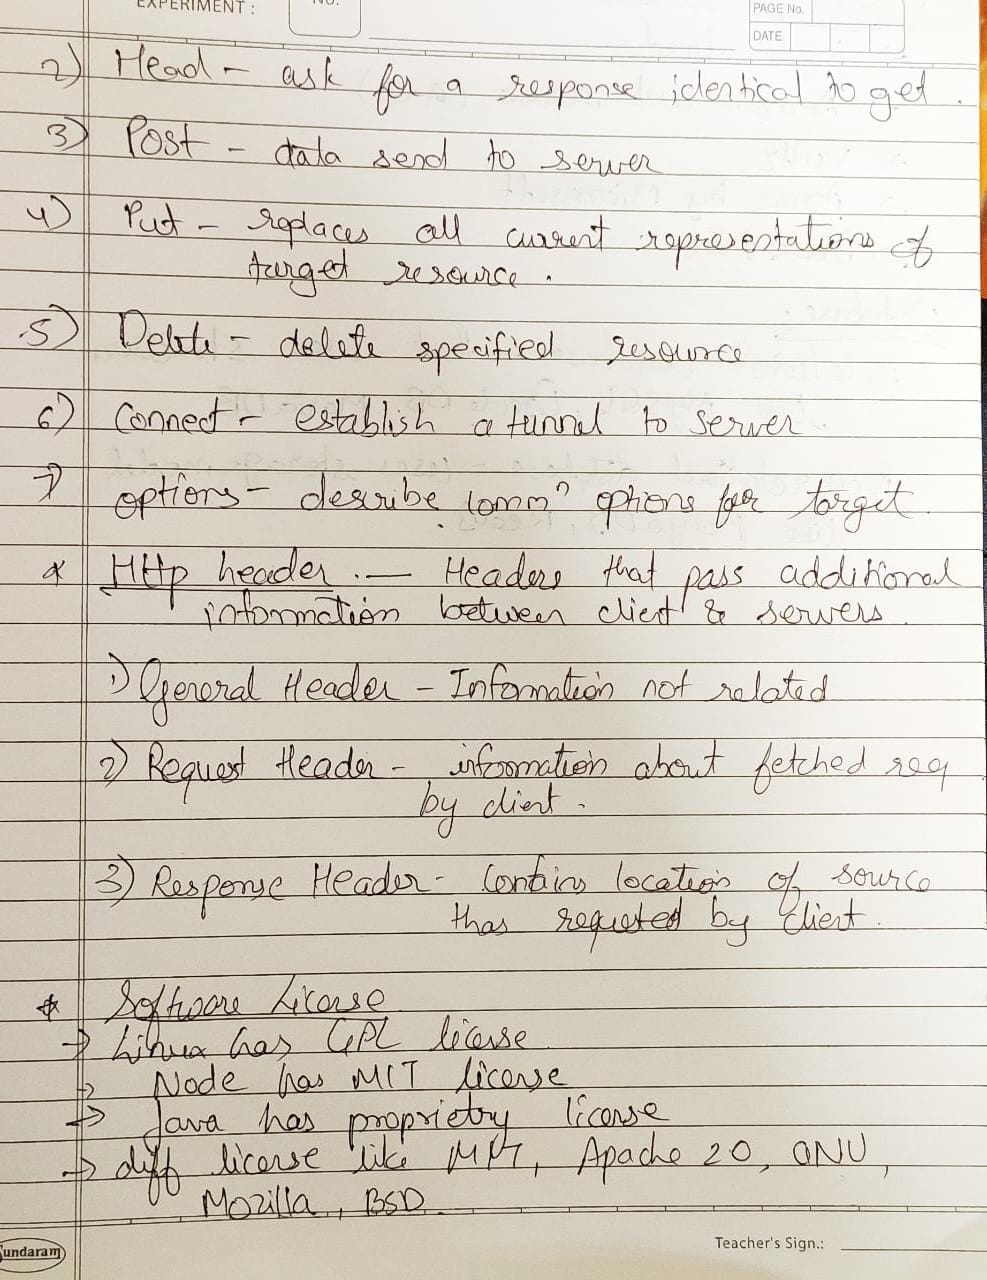 EXPERIMENT :
NO.
PAGE No.
DATE
2) Head - ask for a response identical to get.
3) Post - data send to server
4) Put - replaces all current representations of
target resource.
5) Delete - delete specified resource
6) Connect - establish a tunnel to server.
7) options - describe commⁿ options for target.
* HHp header. — Headers that pass additional
information between client & servers.
1) General Header - Information not related
2) Request Header - information about fetched req
by client.
3) Response Header - Contains location of source
thas requested by client.
* Software License
→ Linux has GPL license
→ Node has MIT license
→ Java has proprietry license
→ diff license like MIT, Apache 2.0, GNU,
Mozilla, BSD.
Sundaram
Teacher's Sign.: